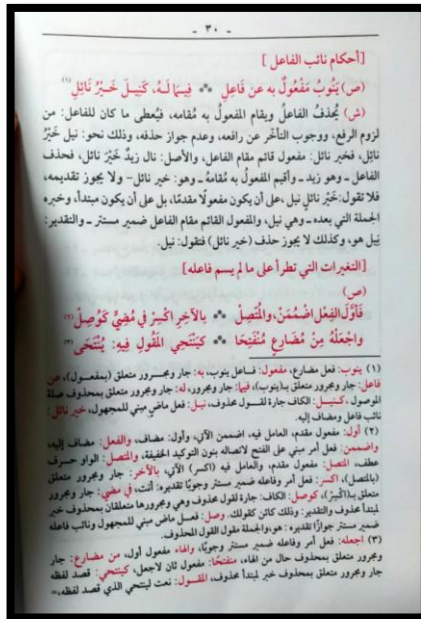 - ٣٠ -
[أحكام نائب الفاعل]
(ص) يَنُوبُ مَفْعُولٌ بِهِ عن فَاعِلِ ** فِيمَا لَهُ، كَنِيلَ خَيْرُ نَائِلِ (١)
(ش) يُحذفُ الفاعلُ ويقام المفعولُ به مُقامه، فيُعطى ما كان للفاعل: من
لزوم الرفع، ووجوب التأخر عن رافعه، وعدم جواز حذفه، وذلك نحو: نيل خَيْرُ
نائِل، فخير نائل: مفعول قائم مقام الفاعل، والأصل: نال زيدٌ خَيْرَ نائل، فحذف
الفاعل ـ وهو زيد ـ وأقيم المفعول به مُقامهُ ـ وهو: خير نائل- ولا يجوز تقديمه،
فلا تقول: خَيْرُ نائلٍ نيل، على أن يكون مفعولًا مقدمًا، بل على أن يكون مبتدأ، وخبره
الجملة التي بعده ـ وهي نيل، والمفعول القائم مقام الفاعل ضمير مستتر ـ والتقدير:
نِيل هو، وكذلك لا يجوز حذف (خير نائل) فتقول: نيل.
[التغيرات التي تطرأ على ما لم يسم فاعله]
(ص)
فَأَوَّلَ الفِعْلِ اضْمُمَنْ، والْمُتَّصِلْ ** بالآخرِ اكْسِرْ فِي مُضِيٍّ كَوُصِلْ (٢)
واجْعَلْهُ مِنْ مُضَارِعٍ مُنْفَتِحَا ** كَيَنْتَحِي الْمَقُولِ فِيهِ: يُنْتَحَى (٣)
(١) ينوب: فعل مضارع، مفعول: فاعل ينوب، به: جار ومجرور متعلق (بمفعول)، عن
فاعل: جار ومجرور متعلق بـ(ينوب)، فيما: جار ومجرور، له: جار ومجرور متعلق بمحذوف صلة
الموصول، كنيل: الكاف جارة لقول محذوف، نيل: فعل ماض مبني للمجهول، خير نائل:
نائب فاعل ومضاف إليه.
(٢) أول: مفعول مقدم، العامل فيه، اضممن الآتي، وأول: مضاف، والفعل: مضاف إليه،
واضممن: فعل أمر مبني على الفتح لاتصاله بنون التوكيد الخفيفة، والمتصل: الواو حرف
عطف، المتصل: مفعول مقدم، والعامل فيه (اكسر) الآتي، بالآخر: جار ومجرور متعلق
(بالمتصل)، اكسر: فعل أمر وفاعله ضمير مستتر وجوبًا تقديره: أنت، في مضي: جار ومجرور
متعلق بـ(اكْسِرْ)، كوصل: الكاف: جارة لقول محذوف وهي ومجرورها متعلقان بمحذوف خبر
لمبتدأ محذوف والتقدير: وذلك كائن كقولك. وصل: فعل ماض مبني للمجهول ونائب فاعله
ضمير مستتر جوازًا تقديره: هو، والجملة مقول القول المحذوف.
(٣) اجعله: فعل أمر وفاعله ضمير مستتر وجوبًا، والهاء مفعول أول، من مضارع: جار
ومجرور متعلق بمحذوف حال من الهاء، منفتحًا: مفعول ثان لاجعل، كينتحي: قصد لفظه
جار ومجرور متعلق بمحذوف خبر لمبتدأ محذوف، المقول: نعت لينتحي الذي قصد لفظه،=